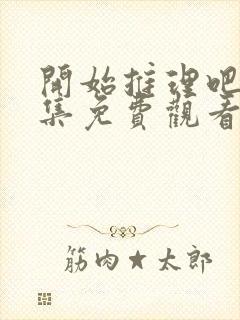 開始推理吧
集免費觀看
筋肉★太郎